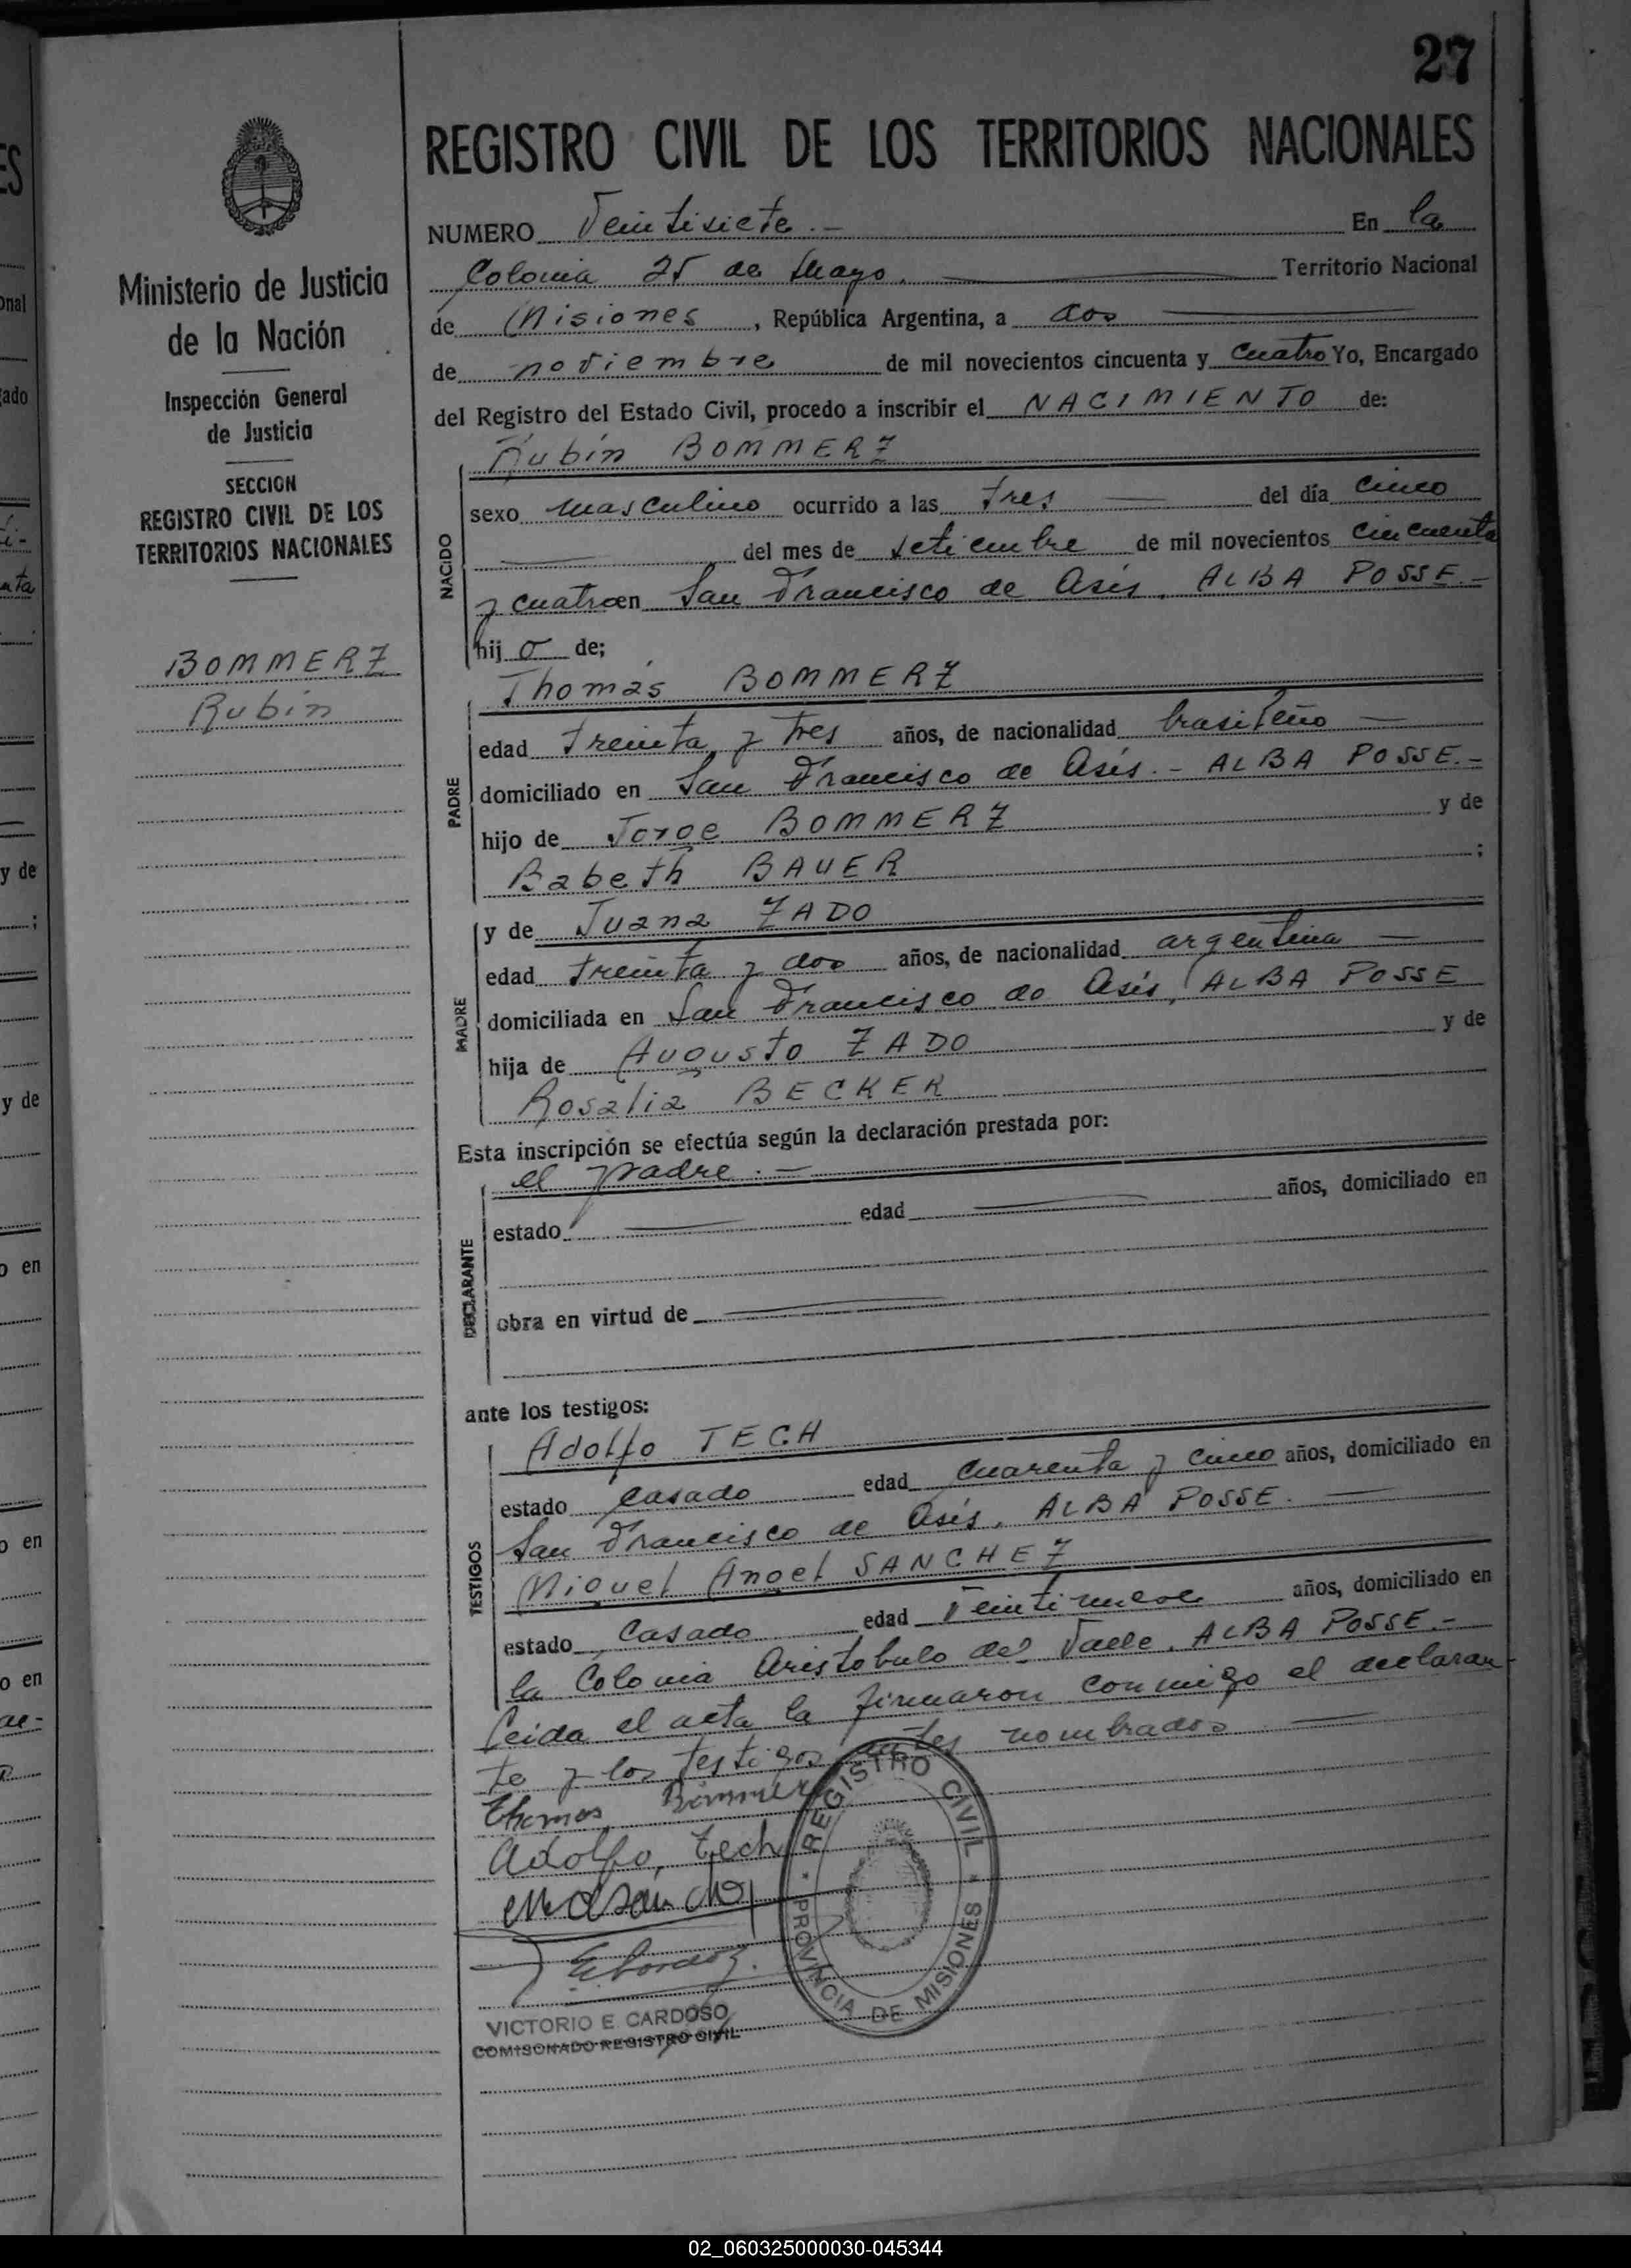 27
REGISTRO CIVIL DE LOS TERRITORIOS NACIONALES
Ministerio de Justicia
de la Nación
Inspección General
de Justicia
SECCION
REGISTRO CIVIL DE LOS
TERRITORIOS NACIONALES
BOMMERZ
Rubín
NUMERO Veintisiete.- En la
Colonia 25 de Mayo. Territorio Nacional
de Misiones, República Argentina, a dos
de noviembre de mil novecientos cincuenta y cuatro Yo, Encargado
del Registro del Estado Civil, procedo a inscribir el NACIMIENTO de:
NACIDO
Rubín BOMMERZ
sexo masculino ocurrido a las tres del día cinco
del mes de setiembre de mil novecientos cincuenta
y cuatro en San Francisco de Asís, ALBA POSSE.-
hijo de;
PADRE
Thomás BOMMERZ
edad treinta y tres años, de nacionalidad brasileño
domiciliado en San Francisco de Asís.- ALBA POSSE.-
hijo de Jorge BOMMERZ y de
Babeth BAUER ;
MADRE
y de Juana ZADO
edad treinta y dos años, de nacionalidad argentina
domiciliada en San Francisco de Asís, ALBA POSSE
hija de Augusto ZADO y de
Rosalia BECKER
Esta inscripción se efectúa según la declaración prestada por:
DECLARANTE
el padre.-
estado edad años, domiciliado en
obra en virtud de
ante los testigos:
TESTIGOS
Adolfo TECH
estado casado edad cuarenta y cinco años, domiciliado en
San Francisco de Asís, ALBA POSSE.
Miguel Angel SANCHEZ
estado casado edad veintinueve años, domiciliado en
la Colonia Aristobulo del Valle, ALBA POSSE.-
Leida el acta la firmaron conmigo el declaran-
te y los testigos antes nombrados
Thomas Bommerz
Adolfo, Tech
REGISTRO CIVIL
PROVINCIA DE MISIONES
VICTORIO E. CARDOSO
COMISONADO REGISTRO CIVIL
02_060325000030-045344